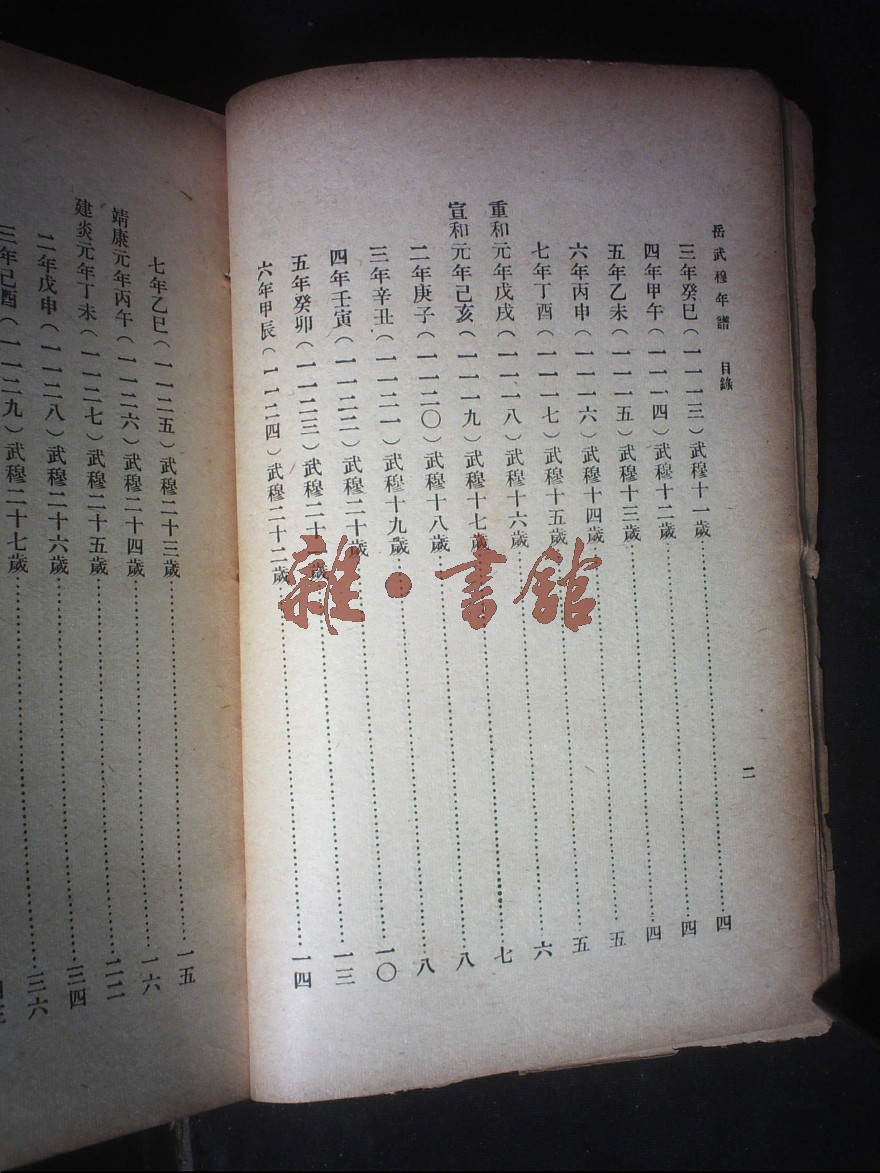 岳武穆年譜 目錄 二
三年癸巳（一一一三）武穆十一歲……四
四年甲午（一一一四）武穆十二歲……四
五年乙未（一一一五）武穆十三歲……四
六年丙申（一一一六）武穆十四歲……五
七年丁酉（一一一七）武穆十五歲……五
重和元年戊戌（一一一八）武穆十六歲……六
宣和元年己亥（一一一九）武穆十七歲……七
二年庚子（一一二〇）武穆十八歲……八
三年辛丑（一一二一）武穆十九歲……八
四年壬寅（一一二二）武穆二十歲……一〇
五年癸卯（一一二三）武穆二十一歲……一三
六年甲辰（一一二四）武穆二十二歲……一四
七年乙巳（一一二五）武穆二十三歲……一五
靖康元年丙午（一一二六）武穆二十四歲……一六
建炎元年丁未（一一二七）武穆二十五歲……二二
二年戊申（一一二八）武穆二十六歲……三四
三年己酉（一一二九）武穆二十七歲……三六
雜·書館